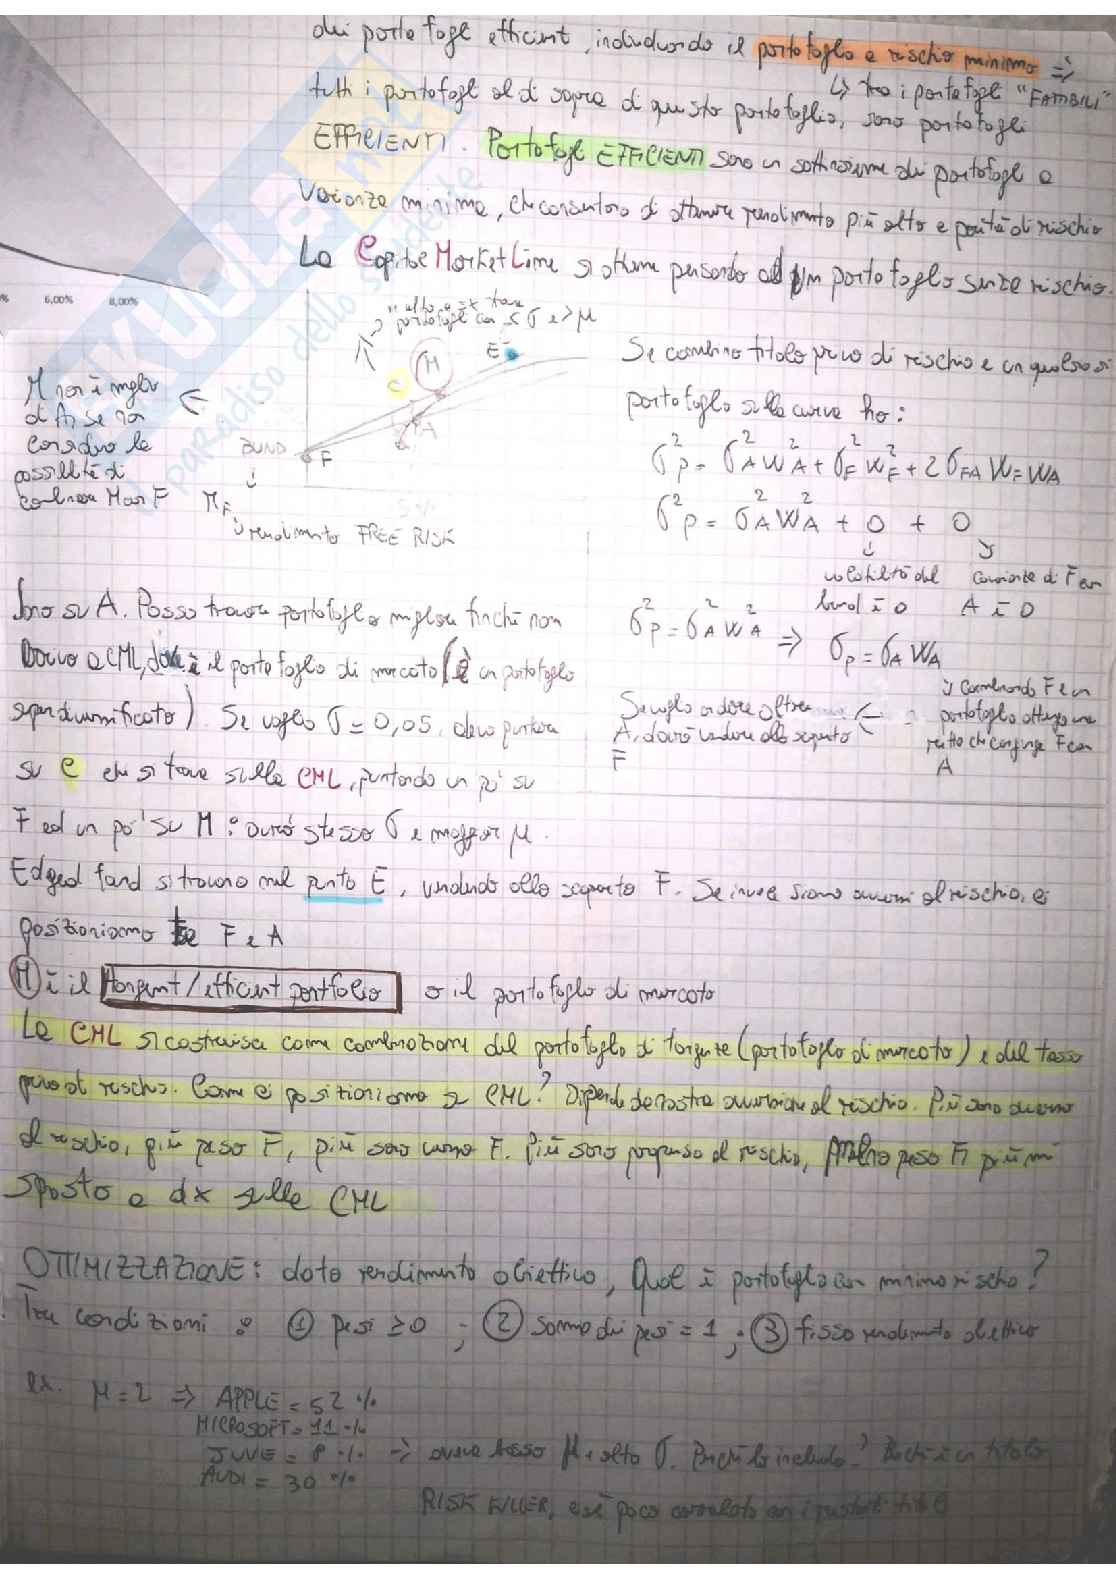 dei portafogl efficient, individuando il portafoglio a rischio minimo =>
↳ tra i portafogli "FATTIBILI"
tutti i portafogl al di sopra di questo portafoglio, sono portafogli
EFFICIENTI. Portafogl EFFICIENTI sono un sottoinsieme dei portafogl a
varianza minima, che consentono di ottenere rendimento più alto a parità di rischio
La Capital Market Line si ottiene pensando ad un portafoglio senza rischio.
6,00% 8,00%
" alto a sx trovo
portafogli con < σ e > μ
M
E
C
A
BUND
F
M non è meglio
di A se non
considero la
possibilità di
combinare M con F
M F
rendimento FREE RISK
5%
Se combino titolo privo di rischio e un qualsiasi
portafoglio sulla curva ho:
σ²P = σ²A W²A + σ²F W²F + 2 σFA WF WA
σ²P = σ²A W²A + 0 + 0
volatilità del
bund è 0
covarianza di F con
A è 0
σ²P = σ²A W²A => σP = σA WA
combinando F e un
portafoglio ottengo una
retta che congiunge F con
A
Se voglio andare oltre
A, dovrò vendere allo scoperto
F
Sono su A. Posso trovare portafoglio migliore finché non
arrivo a CML, dove è il portafoglio di mercato (è un portafoglio
superdiversificato). Se voglio σ = 0,05, devo puntare
su C che si trova sulla CML, puntando un po' su
F ed un po' su M: avrò stesso σ e maggior μ.
Edged fund si trovano nel punto E, vendendo allo scoperto F. Se invece siamo avversi al rischio, ci
posizioniamo tra F e A
M è il tangent/efficient portfolio o il portafoglio di mercato
La CML si costruisce come combinazione del portafoglio di tangenza (portafoglio di mercato) e del tasso
privo di rischio. Come ci posizioniamo su CML? Dipende da nostra avversione al rischio. Più sono avverso
al rischio, più peso F, più sono vicino F. Più sono propenso al rischio, meno peso F, più mi
sposto a dx sulla CML
OTTIMIZZAZIONE: dato rendimento obiettivo, Qual è portafoglio con minimo rischio?
Tre condizioni: ① pesi ≥0 ; ② somma dei pesi = 1 ; ③ fisso rendimento obiettivo
ex. μ=2 => APPLE = 52 %
MICROSOFT = 11 %
JUVE = 8 % => aveva basso μ e alto σ. Perché lo includo? Perché è un titolo
AUDI = 30 %
RISK KILLER, cioè poco correlato con i restanti titoli